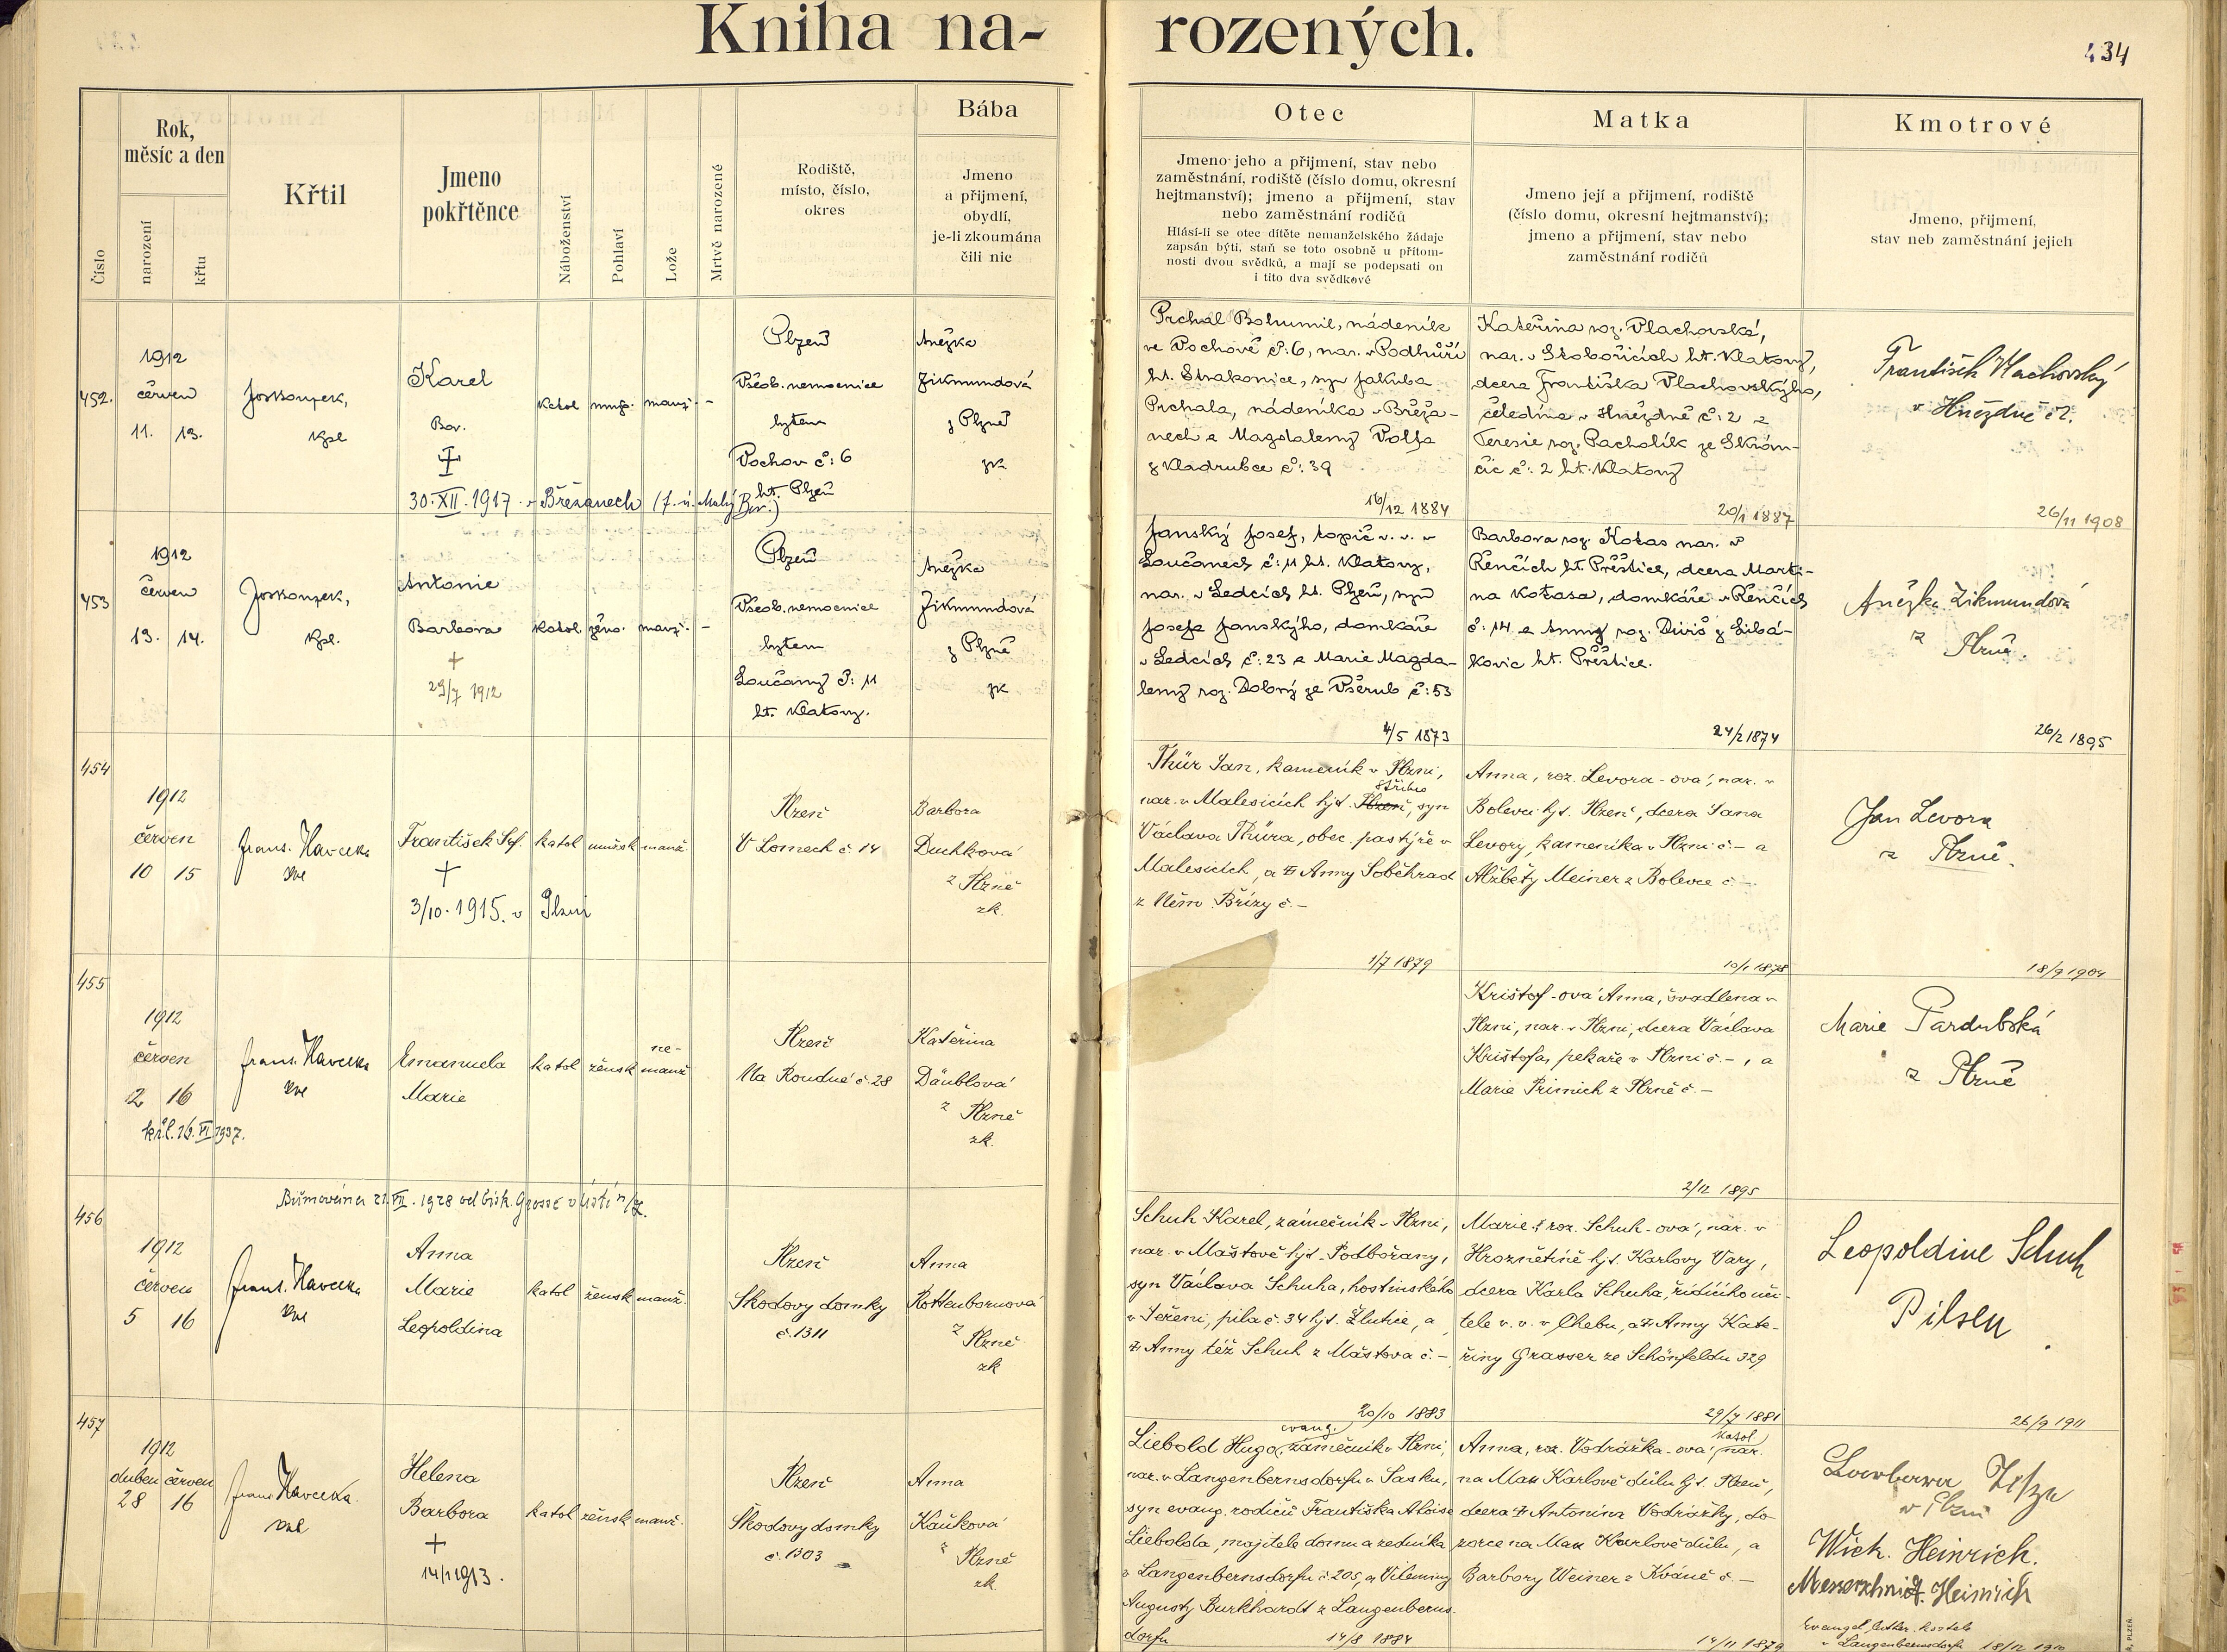 Kniha na-
rozených.
434
Číslo
Rok,
měsíc a den
narození
křtu
Křtil
Jmeno
pokřtěnce
Náboženství
Pohlaví
Lože
Mrtvě narozené
Rodiště,
místo, číslo,
okres
Bába
Jmeno
a přijmení,
obydlí,
je-li zkoumána
čili nic
Otec
Jmeno jeho a přijmení, stav nebo
zaměstnání, rodiště (číslo domu, okresní
hejtmanství); jmeno a přijmení, stav
nebo zaměstnání rodičů
Hlásí-li se otec dítěte nemanželského žádaje
zapsán býti, staň se toto osobně u přítom-
nosti dvou svědků, a mají se podepsati on
i tito dva svědkové
Matka
Jmeno její a přijmení, rodiště
(číslo domu, okresní hejtmanství);
jmeno a přijmení, stav nebo
zaměstnání rodičů
Kmotrové
Jmeno, přijmení,
stav neb zaměstnání jejich
452.
1912
červen
11. 13.
kpl
Karel
Bor.
30. XII. 1917 v Břežanech (f. ú. Malý Bor.)
katol
manž. -
Plzeň
Všeob. nemocnice
bytem
Pochov č: 6
ht. Plzeň
Anežka
Zikmundová
z Plzně
zk
Prchal Bohumil, nádeník
ve Pochově č: 6, nar. v Podhůří
ht. Strakonice, syn Jakuba
Prchala, nádeníka v Břeža-
nech a Magdaleny Volfa
z Kladrubce č: 39
16/12 1884
Kateřina roz. Vlachovská,
nar. v Skobořicích ht. Klatovy,
dcera Františka Vlachovskýho,
čeledína v Hnězdně č: 2 a
Teresie roz. Pacholík ze Skrám-
čic č: 2 ht. Klatovy
20/1 1887
František Vlachovský
v Hnězdně č 2.
26/11 1908
453
1912
červen
13. 14.
kpl.
Antonie
Barbora
29/7 1912
katol žens. manž. -
Plzeň
Všeob. nemocnice
bytem
Loučany č: 11
ht. Klatovy.
Anežka
Zikmundová
z Plzně
zk
Janský Josef, topič v. v. v
Loučanech č: 11 ht. Klatovy,
nar. v Ledcích ht. Plzeň, syn
Josefa Janskýho, domkáře
v Ledcích č: 23 a Marie Magda-
leny roz. Dobrý ze Všerub č: 53
4/5 1873
Barbora roz. Kotas nar. v
Řenčích ht. Přeštice, dcera Marti-
na Kotasa, domkáře v Řenčích
č: 14 a Anny roz. Duriš z Libá-
kovic ht. Přeštice.
24/2 1874
Anežka Zikmundová
z Plzně.
26/2 1895
454
1912
červen
10 15
Frant. Havelka
František Jos.
3/10. 1915. v Plzni
katol mužsk manž.
Plzeň
V Lomech č 14
Barbora
Duchková
z Plzně
zk.
Thür Jan, kameník v Plzni,
Stříbro
nar. v Malesicích hjt. Plzeň, syn
Václava Thüra, obec. pastýře v
Malesicích, a Anny Soběhrad
z Něm. Břízy č. -
1/7 1879
Anna, roz. Levora-ová, nar. v
Bolevci hjt. Plzeň, dcera Jana
Levory, kameníka v Plzni č. - a
Alžběty Meiner z Bolevce č. -
10/1 1878
Jan Levora
z Plzně.
18/9 1904
455
1912
červen
2 16
Frant. Havelka
Emanuela
Marie
katol žensk
ne-
manž
Plzeň
Na Roudné č. 28
Kateřina
Däublová
z Plzně
zk.
Krištof-ová Anna, švadlena v
Plzni, nar. v Plzni, dcera Václava
Krištofa, pekaře v Plzni č. -, a
Marie Primich z Plzně č. -
2/12 1895
Marie Pardubská
z Plzně
456
Biřmována 21. VII. 1928 od bisk. Grosse v Ústí n/L.
1912
červen
5 16
Frant. Havelka
Anna
Marie
Leopoldina
katol žensk manž.
Plzeň
Škodovy domky
č. 1311
Anna
Rottenbornová
z Plzně
zk
Schuh Karel, zámečník v Plzni,
nar. v Maštově hjt. Podbořany,
syn Václava Schuha, hostinského
č. 34 hjt. Žlutice, a
Anny též Schuh z Maštova č. -
20/10 1883
Marie, roz. Schuh-ová, nar. v
Hroznětíně hjt. Karlovy Vary,
dcera Karla Schuha, řídícího uči-
tele v. v. v Chebu, a Anny Kate-
řiny Grasser ze Schönfeldu 329
29/7 1881
Leopoldine Schuh
Pilsen
26/9 1911
457
1912
duben červen
28 16
Frant. Havelka
Helena
Barbora
14/1 1913.
katol žensk manž.
Plzeň
Škodovy domky
č. 1303
Anna
Kaňková
z Plzně
zk.
evang.
Liebold Hugo, zámečník v Plzni,
nar. v Langenbernsdorfu v Sasku,
syn evang. rodičů Františka Aloise
Liebolda, majitele domu a zedníka
v Langenbernsdorfu č. 205, a Vileminy
Augusty Burkhardt z Langenberns-
dorfu
14/8 1884
katol
Anna, roz. Vodrážka-ová, nar.
na Max Karlově důlu hjt. Plzeň,
dcera Antonína Vodrážky, do-
zorce na Max Karlově důlu, a
Barbory Weiner z Kváně č. -
14/11 1879
v Plzni
Wich. Heinrich.
Messerschmidt. Heinrich
evangel. luther. kostele
v Langenbernsdorfu 18/12 1910